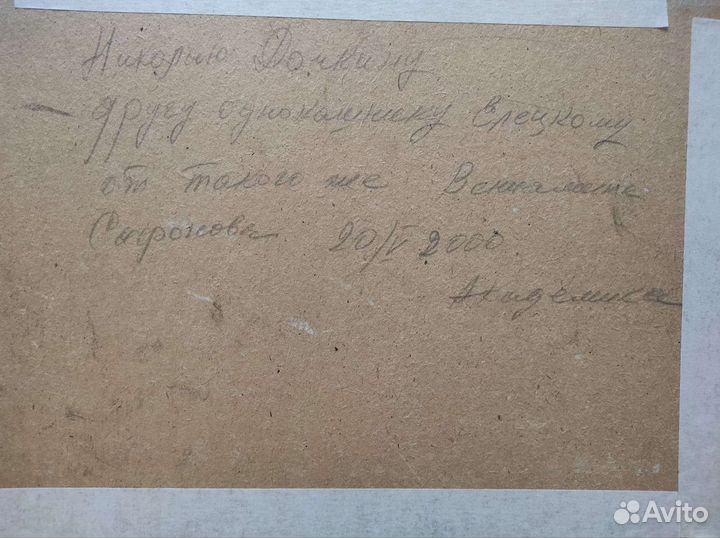 Николаю Дочкину
другу однокашнику Елецкому
от такого же Вениамина
Сафонова 20/V 2000
Академика
Avito